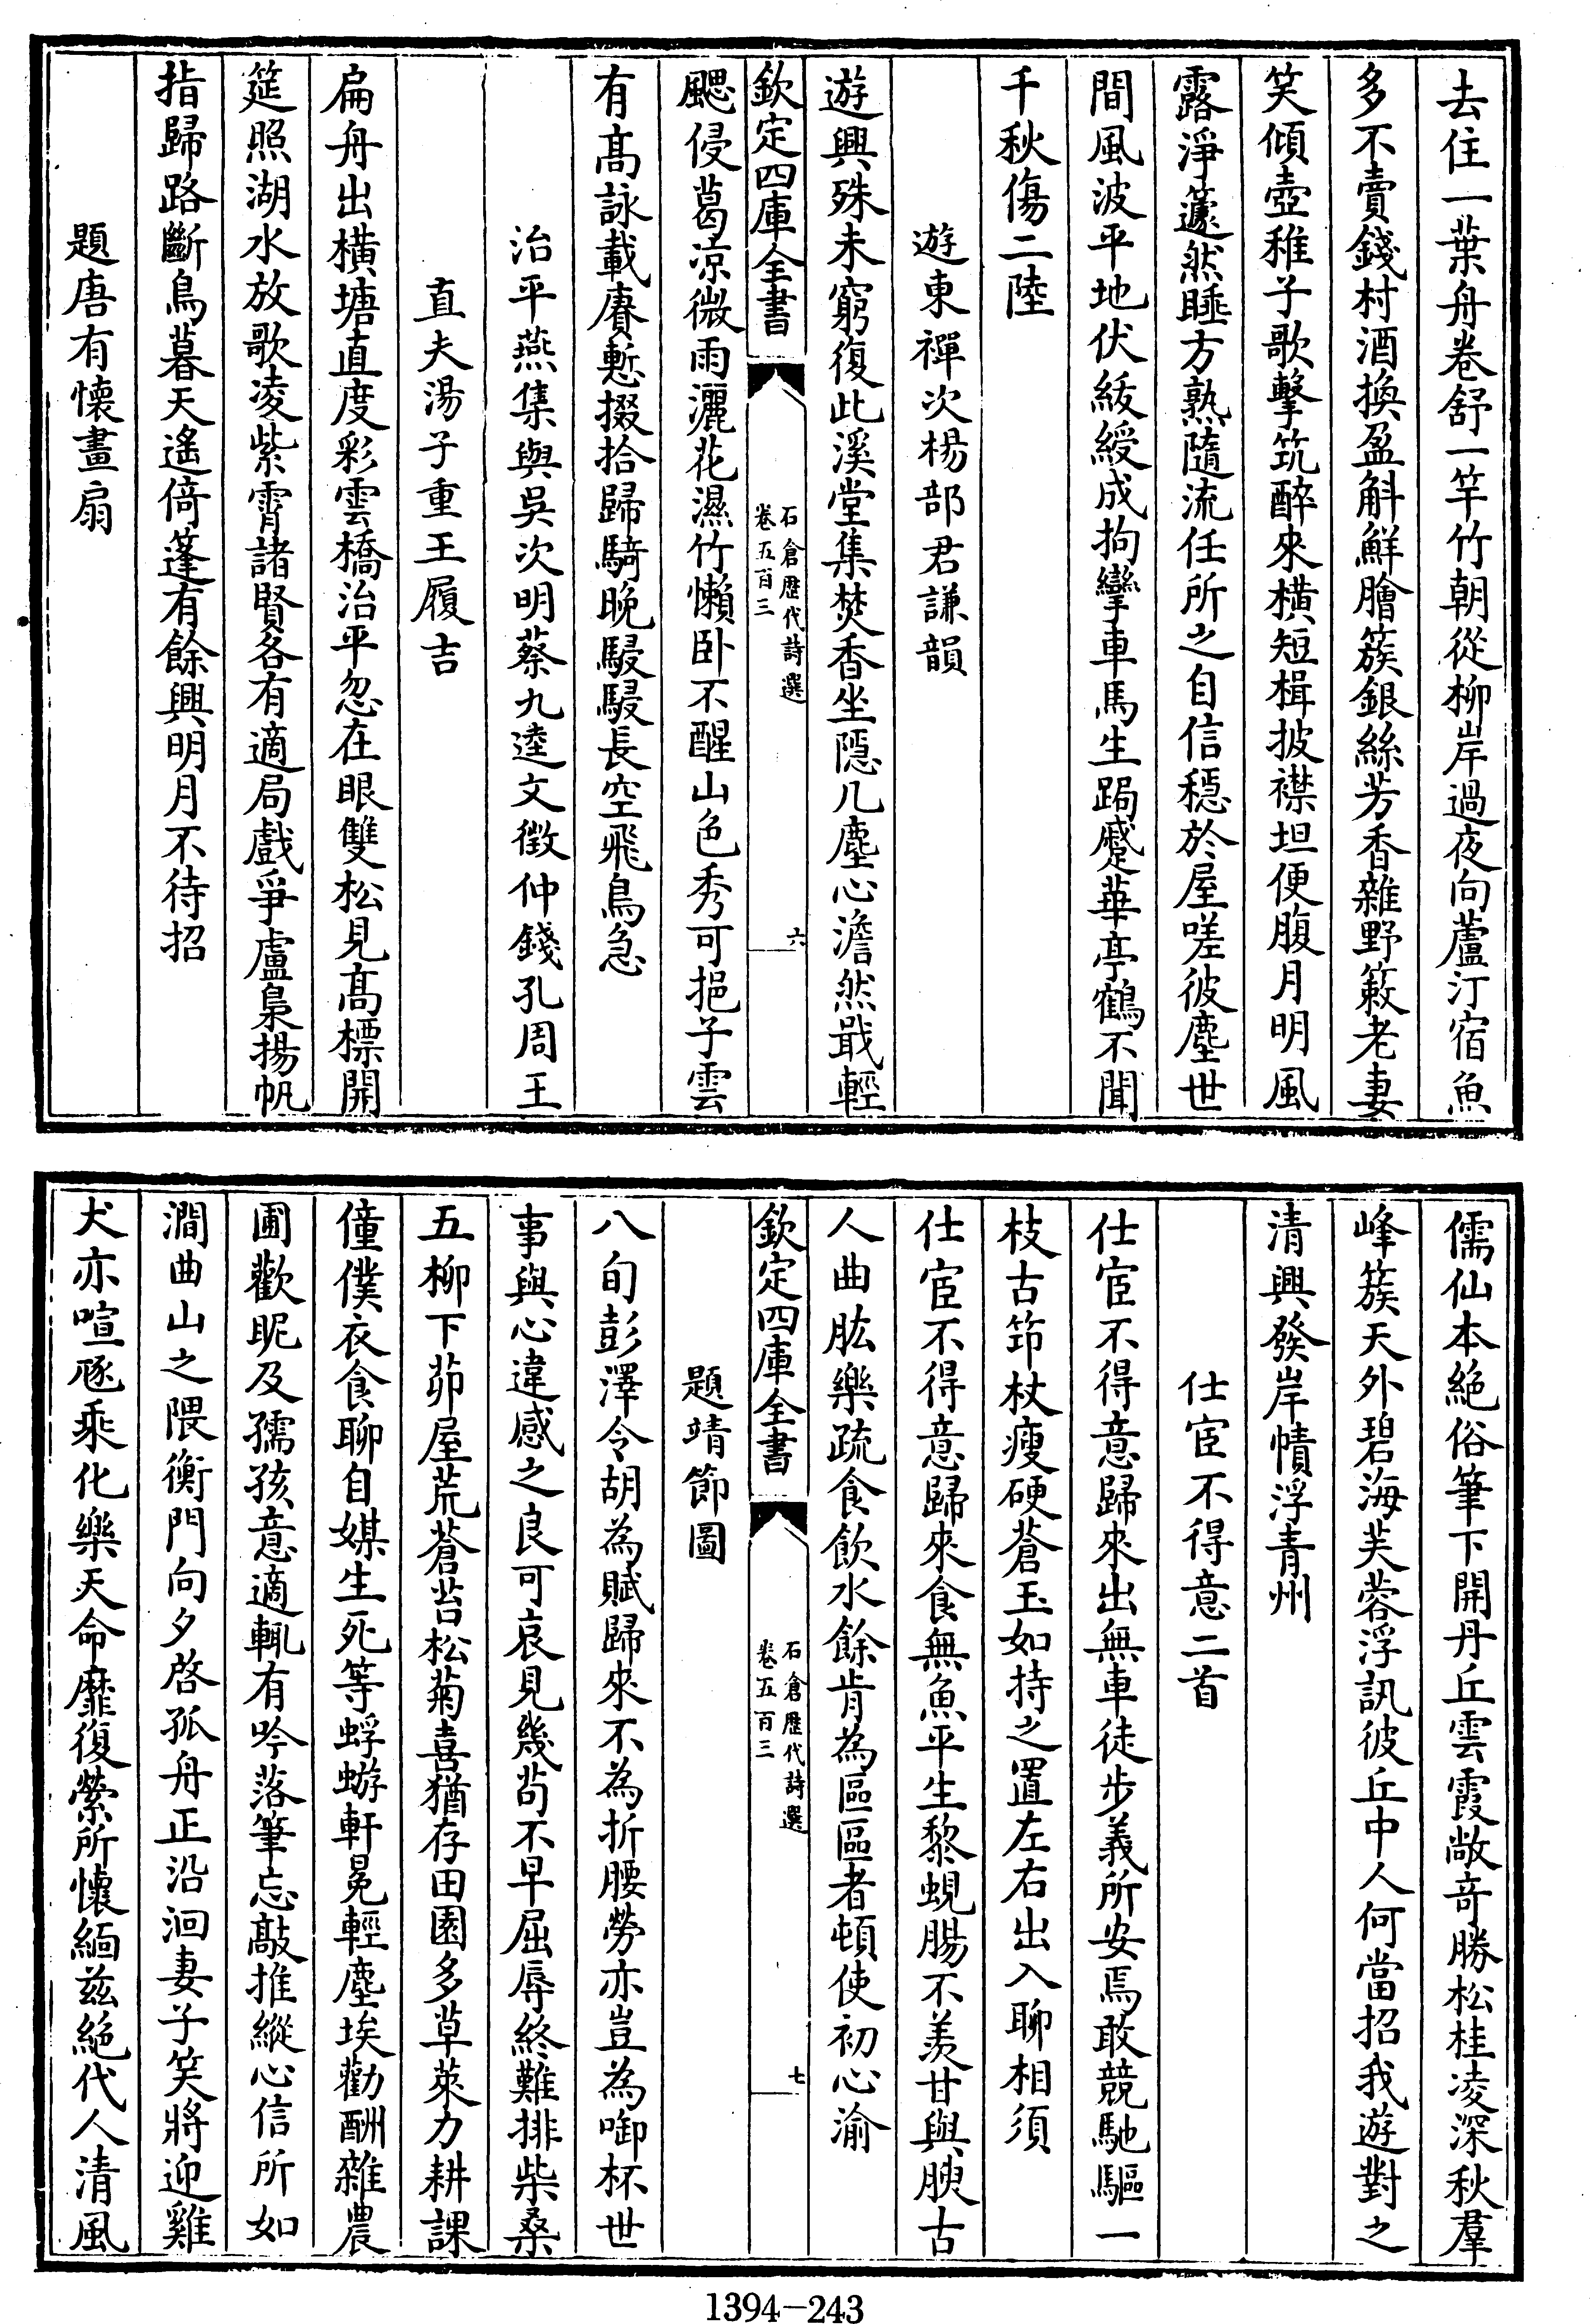 去住一葉舟卷舒一竿竹朝從柳岸過夜向蘆汀宿魚
多不賣錢村酒換盈斛鮮膾簇銀絲芳香雜野蔌老妻
笑傾壺稚子歌擊筑醉來橫短楫披襟坦便腹月明風
露淨蘧然睡方熟隨流任所之自信穩於屋嗟彼塵世
間風波平地伏紱綬成拘攣車馬生跼蹙華亭鶴不聞
千秋傷二陸
遊東禪次楊部君謙韻
遊興殊未窮復此溪堂集焚香坐隱几塵心澹然戢輕
欽定四庫全書
石倉歷代詩選
卷五百三
六
颸侵葛凉微雨灑花濕竹懶卧不醒山色秀可挹子雲
有髙詠載賡慙掇拾歸騎晚駸駸長空飛鳥急
治平燕集與吳次明蔡九逵文徴仲錢孔周王
直夫湯子重王履吉
扁舟出橫塘直度彩雲橋治平忽在眼雙松見髙標開
筵照湖水放歌凌紫霄諸賢各有適局戲爭盧梟揚帆
指歸路斷鳥暮天遙倚篷有餘興明月不待招
題唐有懷畫扇
儒仙本絶俗筆下開丹丘雲霞敞竒勝松桂凌深秋羣
峰簇天外碧海芙蓉浮訊彼丘中人何當招我遊對之
清興發岸幘浮青州
仕宦不得意二首
仕宦不得意歸來出無車徒步義所安焉敢競馳驅一
枝古笻杖瘦硬蒼玉如持之置左右出入聊相須
仕宦不得意歸來食無魚平生黎蜆腸不羨甘與腴古
人曲肱樂疏食飲水餘肯為區區者頓使初心渝
欽定四庫全書
石倉歷代詩選
卷五百三
七
題靖節圖
八旬彭澤令胡為賦歸來不為折腰勞亦豈為啣杯世
事與心違感之良可哀見幾茍不早屈辱終難排柴桑
五柳下茆屋荒蒼苔松菊喜猶存田園多草萊力耕課
僮僕衣食聊自媒生死等蜉蝣軒冕輕塵埃勸酬雜農
圃歡昵及孺孩意適輒有吟落筆忘敲推縱心信所如
澗曲山之隈衡門向夕啓孤舟正沿洄妻子笑將迎雞
犬亦喧豗乘化樂天命靡復縈所懷緬兹絶代人清風
1394-243